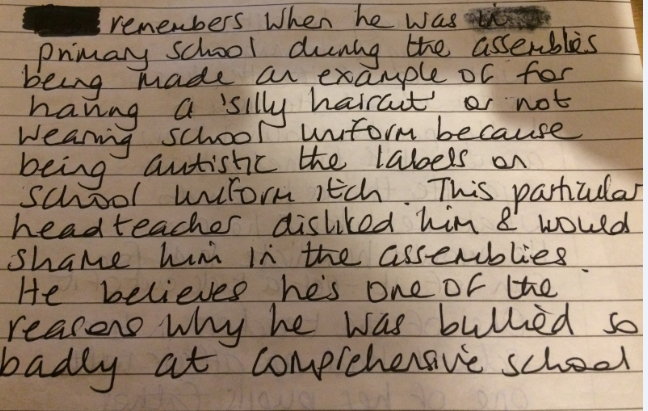 remembers when he was in
primary school during the assemblies
being made an example of for
having a 'silly haircut' or not
wearing school uniform because
being autistic the labels on
school uniform itch. This particular
headteacher disliked him & would
shame him in the assemblies.
He believes he's one of the
reasons why he was bullied so
badly at comprehensive school